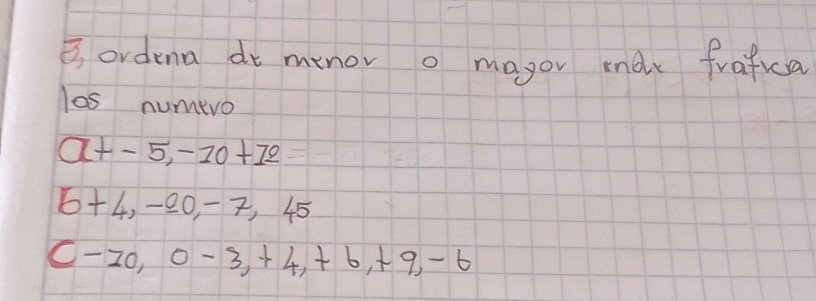 3, ordena de menor o mayor
los numero
a + - 5, - 10 + 12 =
b + 4, - 20, - 7, 45
c - 10, 0 - 3, + 4, + 6, + 9, - 6